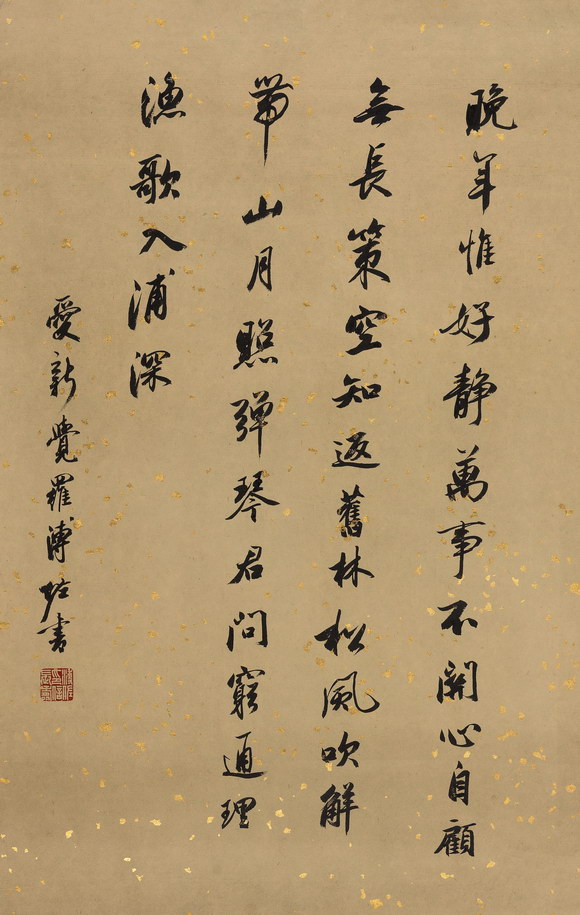 晚年惟好静萬事不関心自顧
無長策空知返舊林松風吹解
帶山月照彈琴君問窮通理
漁歌入浦深
愛新覺羅溥書